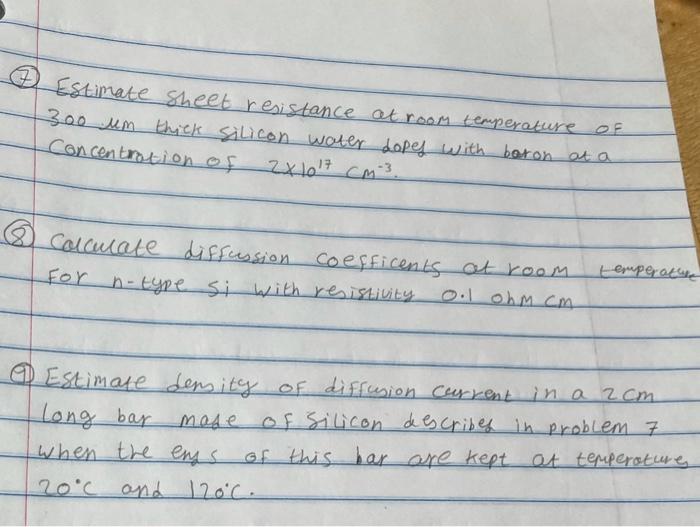 ⑦ Estimate sheet resistance at room temperature of
300 µm thick silicon water doped with boron at a
concentration of 2x10¹⁷ cm⁻³.
⑧ Calculate diffussion coefficents at room temperature
For n-type si with resistivity 0.1 ohm cm
⑨ Estimate density of diffusion current in a 2 cm
long bar made of silicon described in problem 7
when the ends of this bar are kept at temperatures
20°C and 120°C.